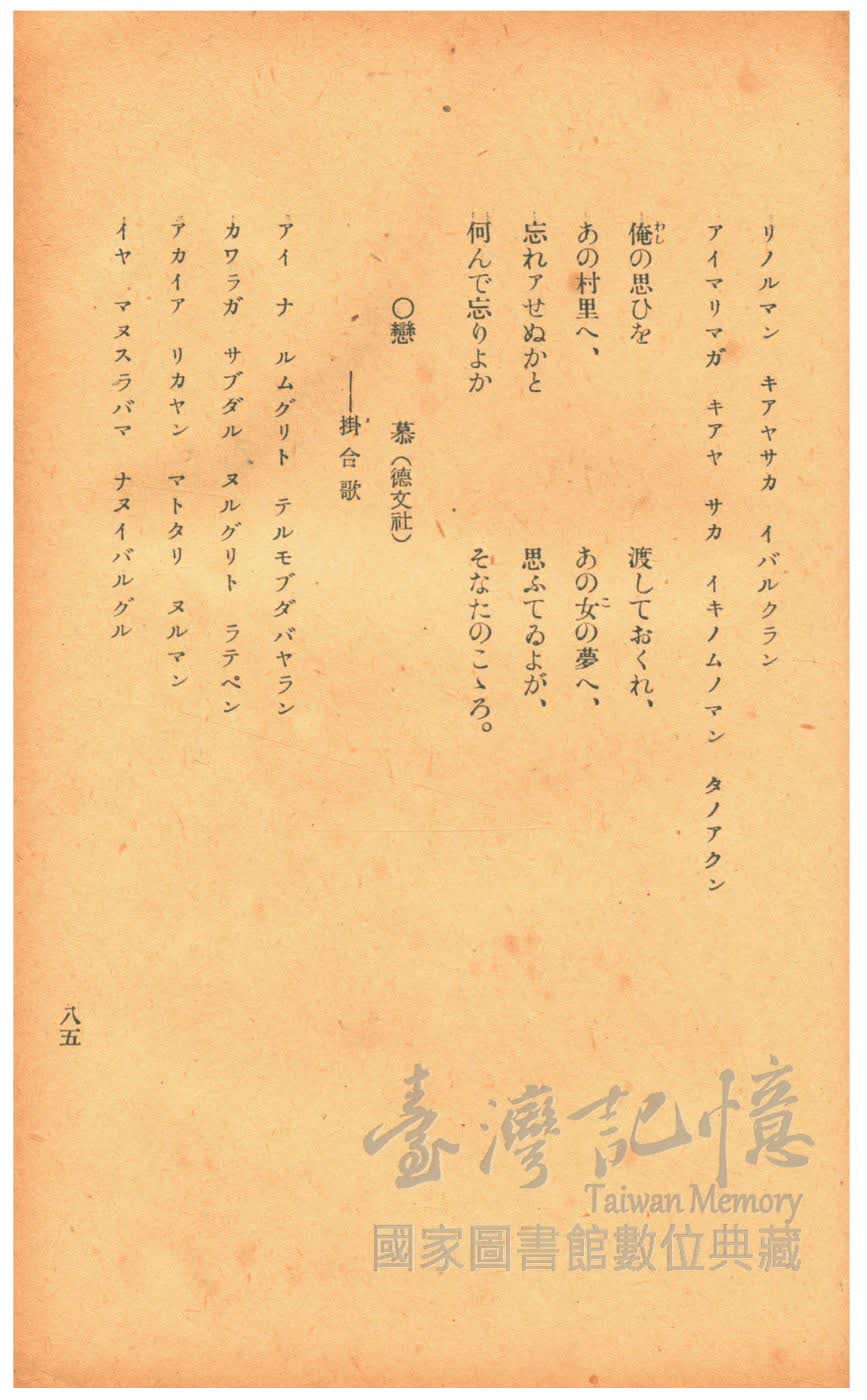 リノルマン　キアヤサカ　イバルクラン
アイマリマガ　キアヤ　サカ　イキノムノマン　タノアクン
俺の思ひを　渡しておくれ、
わし
あの村里へ、　あの女の夢へ、
こ
忘れァせぬかと　思ふてゐよが、
何んで忘りよか　そなたのこゝろ。
〇戀　慕（德文社）
――掛合歌
アイ　ナ　ルムグリト　テルモブダバヤラン
カワラガ　サブダル　ヌルグリト　ラテペン
アカイア　リカヤン　マトタリ　ヌルマン
イヤ　マヌスラバマ　ナヌイバルグル
八五
臺灣記憶
Taiwan Memory
國家圖書館數位典藏